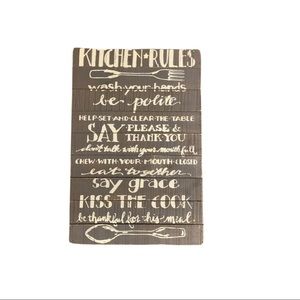 KITCHEN • RULES
wash your hands
be polite
HELP • SET • AND • CLEAR • THE • TABLE
SAY PLEASE &
THANK YOU
don't talk with your mouth full
CHEW • WITH • YOUR • MOUTH • CLOSED
eat together
say grace
KISS THE COOK
be thankful for this meal